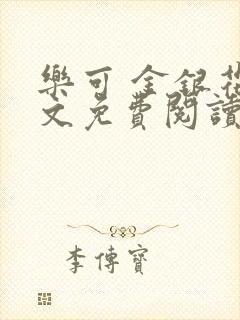 樂可 金銀花
文免費閱讀
李傳寶